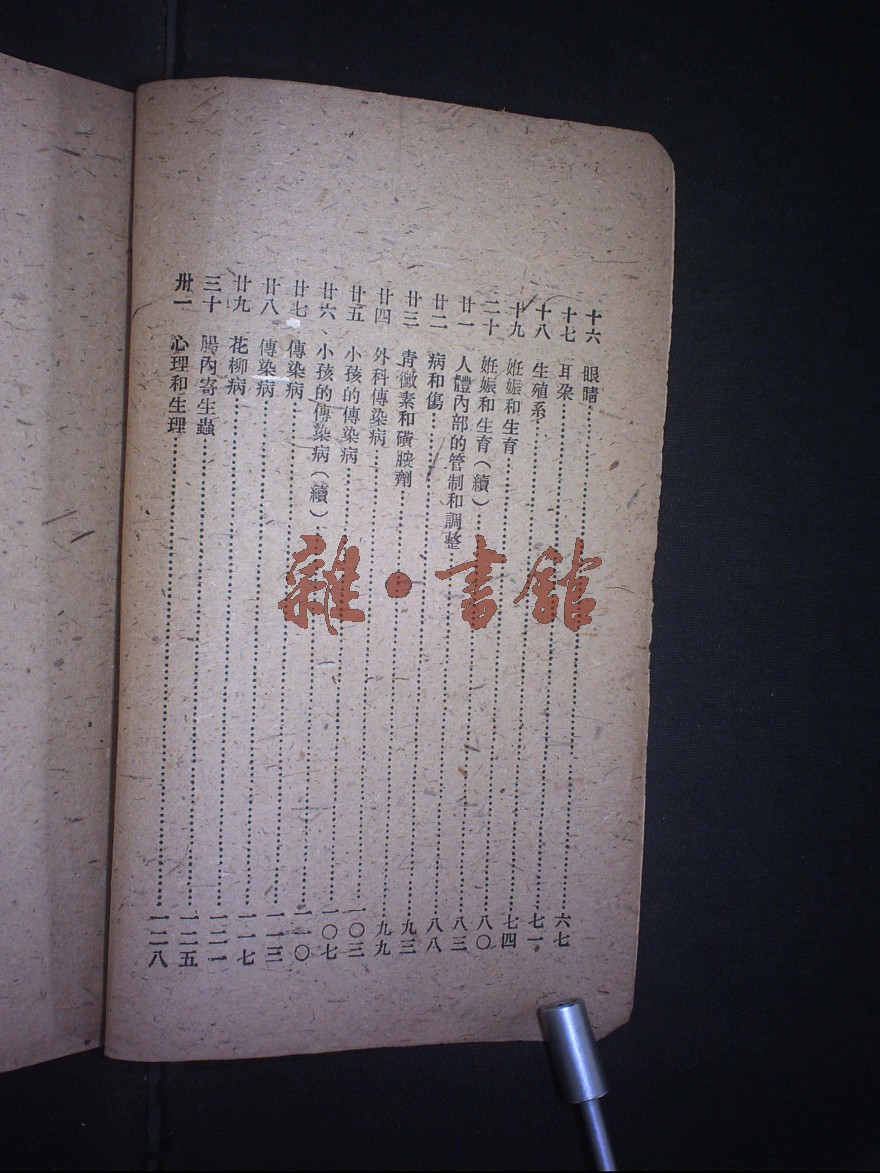 十六 眼睛……六七
十七 耳朵……七一
十八 生殖系……七四
十九 姙娠和生育……八〇
二十 姙娠和生育(續)……八三
廿一 人體內部的管制和調整……八八
廿二 病和傷……九三
廿三 青黴素和磺胺劑……九九
廿四 外科傳染病……一〇三
廿五 小孩的傳染病……一〇七
廿六、小孩的傳染病(續)……一一〇
廿七 傳染病……一一三
廿八 傳染病……一一七
廿九 花柳病……一二一
三十 腸內寄生蟲……一二五
卅一 心理和生理……一二八
雜·書館